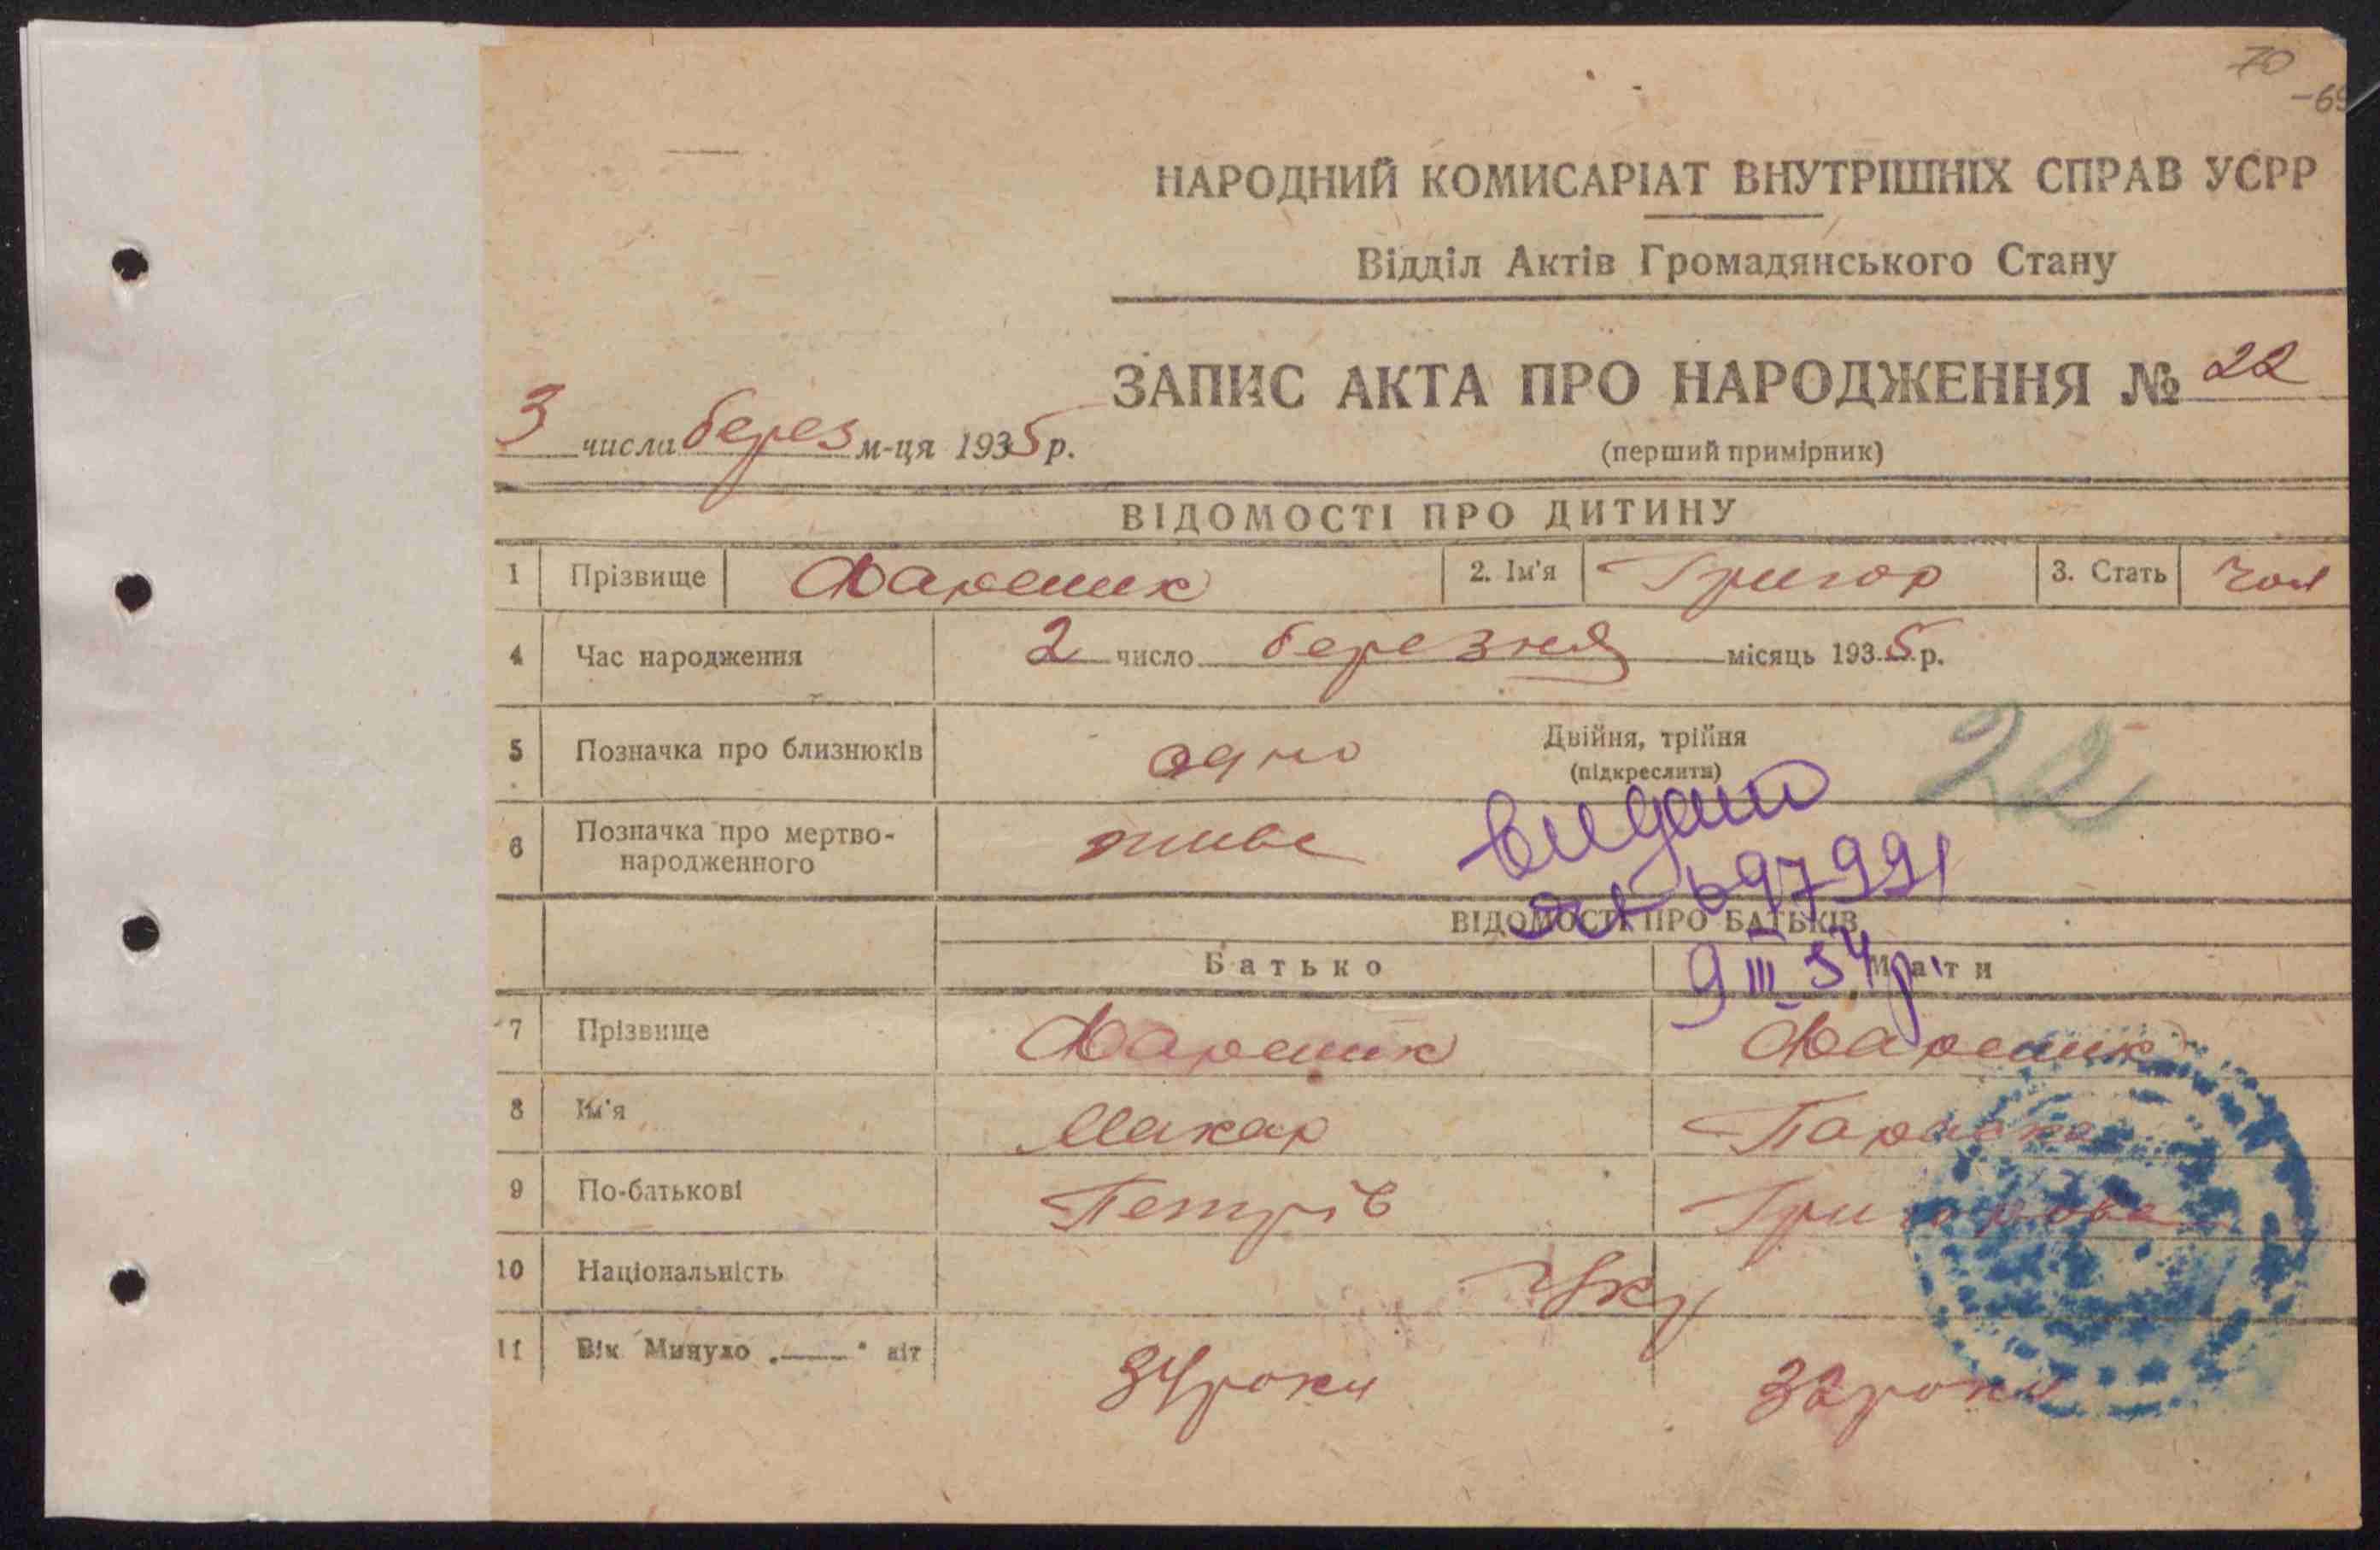 70
-69
НАРОДНИЙ КОМИСАРІАТ ВНУТРІШНІХ СПРАВ УСРР
Відділ Актів Громадянського Стану
ЗАПИС АКТА ПРО НАРОДЖЕННЯ № 22
3 числа берез м-ця 1935 р.
(перший примірник)
ВІДОМОСТІ ПРО ДИТИНУ
1 Прізвище 2. Ім'я Григор 3. Стать чол
4 Час народження 2 число березня місяць 1935 р.
5 Позначка про близнюків одно Двійня, трійня
(підкреслити)
22
6 Позначка про мертво-
народженного живе
видано
697991
9 III 54р
ВІДОМОСТІ ПРО БАТЬКІВ
Батько Мати
7 Прізвище
8 Ім'я Макар Параска
9 По-батькові Петрів Григорова
10 Національність Укр
11 Вік Минуло „——" літ 34 роки 32 роки